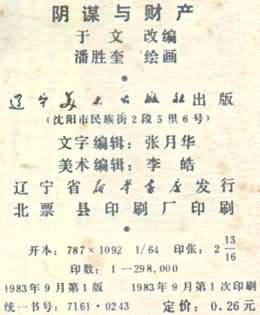 阴谋与财产
于文 改编
潘胜奎 绘画
辽宁美术出版社出版
(沈阳市民族街2段5里6号)
文字编辑：张月华
美术编辑：李皓
辽宁省新华书店发行
北票县印刷厂印刷
开本：787×1092 1/64 印张：2 13/16
印数：1—298,000
1983年9月第1版 1983年9月第1次印刷
统一书号：7161·0243 定价：0.26元